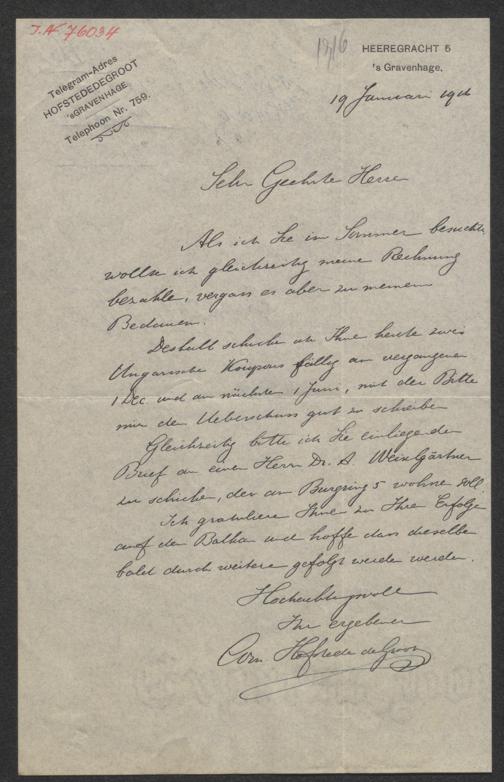 J.N. 76034
Telegram-Adres
HOFSTEDEDEGROOT
'sGRAVENHAGE
Telephoon Nr. 759.
1916
HEEREGRACHT 5
's Gravenhage,
19 Januari 1916
Sehr Geehrte Herren
Als ich Sie im Sommer besuchte,
wollte ich gleichzeitig meine Rechnung
bezahle, vergass es aber zu meinem
Bedauern.
Deshalb schicke ich Ihne heute zwei
Ungarische Koupons fällig am vergangenen
1 Dec und am nächste 1 Juni, mit der Bitte
mir den Ueberschuss gut zu schreibe
Gleichzeitig bitte ich Sie einliegenden
Brief an einen Herrn Dr. A Weixlgärtner
zu schicken, der am Burgring 5 wohne soll.
Ich gratuliere Ihne zu Ihre Erfolge
auf de Balkan und hoffe dass dieselbe
bald durch weitere gefolgt werde werden.
Hochachtungsvoll
Ihr ergebener
Corn Hofstede de Groot